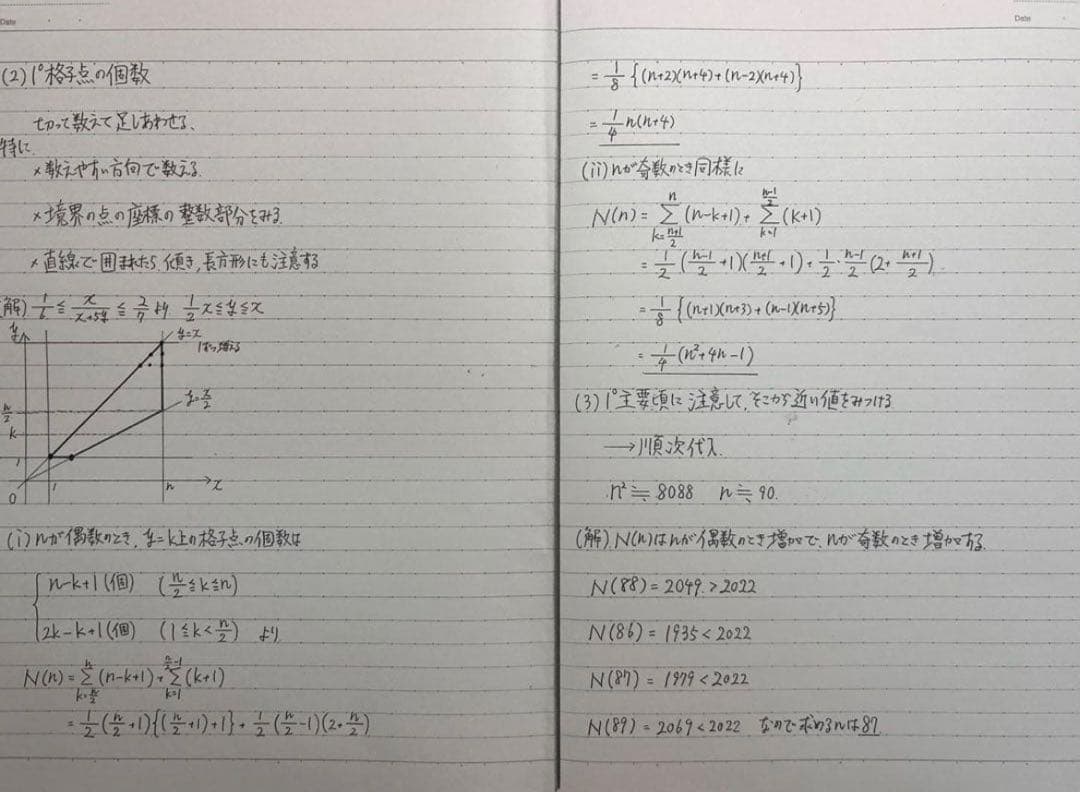 Date
(2) 1° 格子点の個数
切って数えて足しあわせる、
特に、
×数えやすい方向で数える
×境界の点の座標の整数部分をみる
×直線で囲まれたら、傾き,長方形にも注意する
(解) 1/6 ≦ x/(x+5y) ≦ 2/7 より 1/2 x ≦ y ≦ x
y
y=x
y=x/2
n/2
k
1
O
1
n
x
(i) nが偶数のとき, y=k上の格子点の個数は
{ n-k+1 (個) (n/2 ≦ k ≦ n)
2k-k+1 (個) (1 ≦ k < n/2) より
N(n) = Σ_{k=n/2}^{n} (n-k+1) + Σ_{k=1}^{n/2-1} (k+1)
= 1/2 (n/2 +1){(n/2 +1)+1} + 1/2 (n/2 -1)(2+ n/2)
Date
= 1/8 {(n+2)(n+4)+(n-2)(n+4)}
= 1/4 n(n+4)
(ii) nが奇数のとき同様に
N(n) = Σ_{k=(n+1)/2}^{n} (n-k+1) + Σ_{k=1}^{(n-1)/2} (k+1)
= 1/2 ((n-1)/2 +1)((n+1)/2 +1) + 1/2 · (n-1)/2 (2+ (n+1)/2)
= 1/8 {(n+1)(n+3)+(n-1)(n+5)}
= 1/4 (n²+4n-1)
(3) 1° 主要項に注意して,そこから近い値をみつける
→順次代入
n² ≒ 8088 n ≒ 90.
(解) N(n)はnが偶数のとき増加で、nが奇数のとき増加する
N(88) = 2049 > 2022
N(86) = 1935 < 2022
N(87) = 1979 < 2022
N(89) = 2069 < 2022 なので求めるnは87